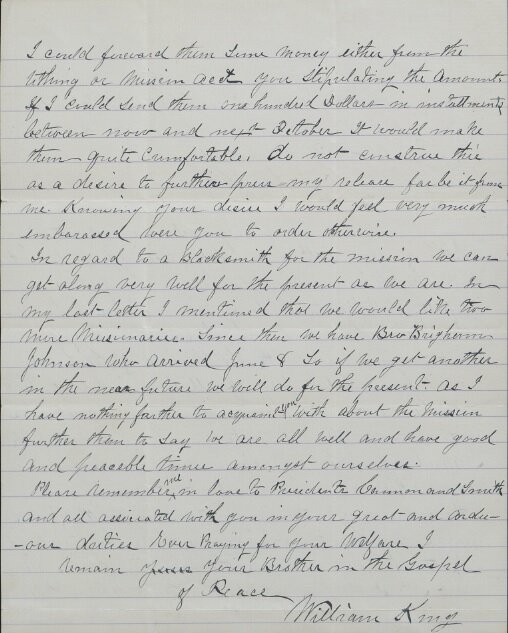 I could forward them some money either from the
tithing or Mission act you stipulating the amount
If I could send them one hundred Dollars in installments
between now and next October It would make
them quite Cumfortable. do not construe this
as a desire to further press my release far be it from
me. Knowing your desire I would feel very much
embarassed were you to order otherwise.
In regard to a Blacksmith for the mission we can
get along very well for the present as we are. In
my last letter I mentioned that we would like two
more Missionaries. Since then we have Bro Brighom
Johnson who arrived June 8 So if we get another
in the near future we well do for the present. As I
have nothing farther to acquaint you with about the Mission
further than to say we are all well and have good
and peacable times amongst ourselves.
Please remember me in love to Presidents Cannon and Smith
and all assosiated with you in your great and ardu-
-ous duties Ever Praying for your Welfare I
remain yours Your Brother in the Gospel
of Peace
William King